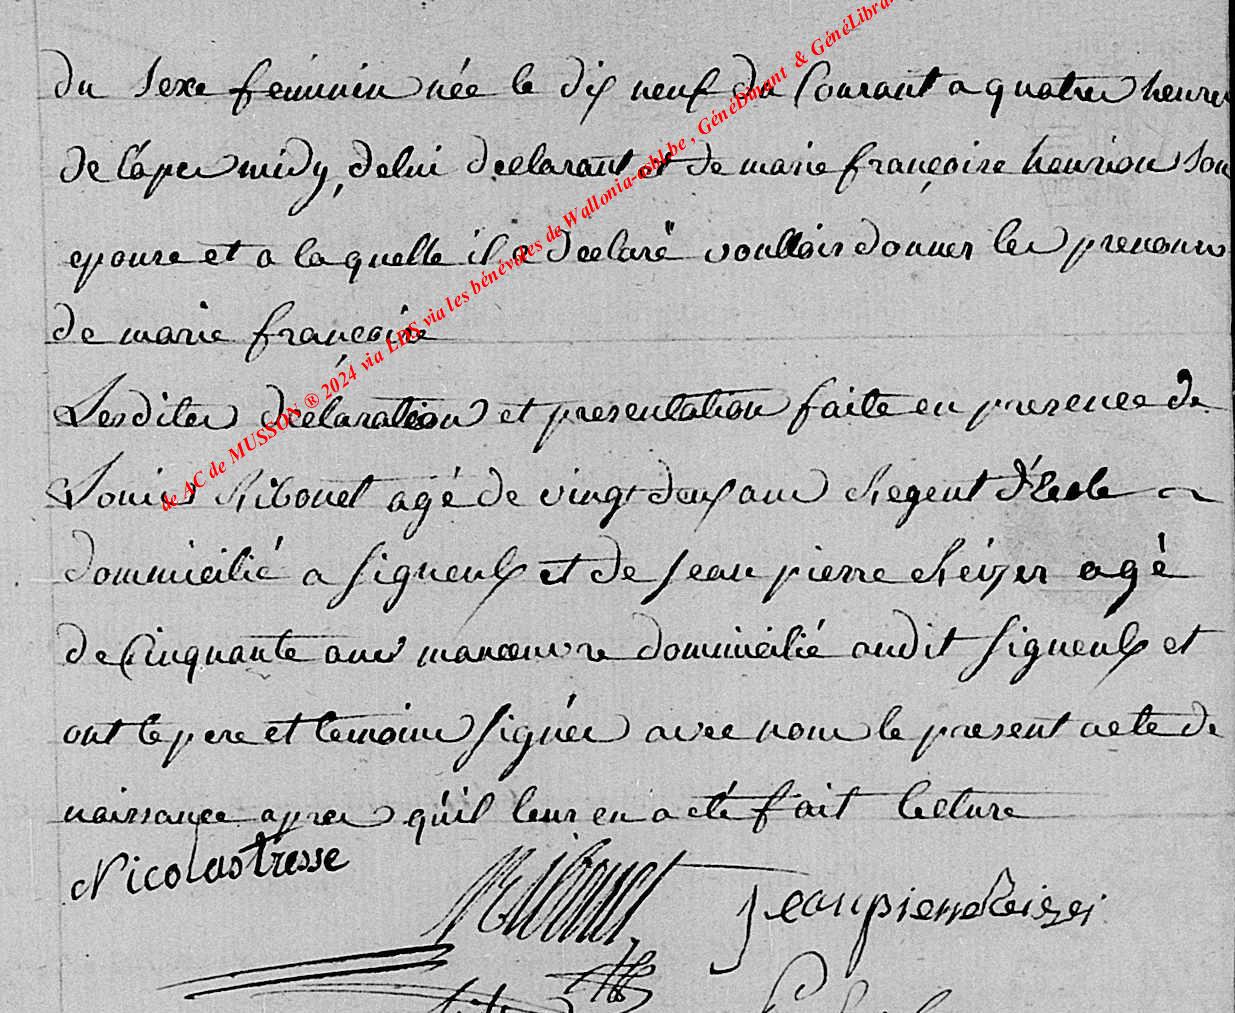 du sexe feminin née le dix neuf du Courant a quatre heures
de l'apres midy, de lui declarant et de marie françoise henrion son
epouse et a la quelle il a declaré voulloir donner les prenoms
de marie françoise
Lesdites declaration et presentation faite en presence de
Louis Ribonet agé de vingt deux ans Regent d'Ecole
dommicilié a Signeulx et de Jean pierre Reizer agé
de Cinquante ans manoeuvre domicilié audit Signeulx et
ont le pere et temoins signés avec nous le present acte de
naissance apres qu'il leur en a été fait lecture
Nicolas tresse
Ribonet
Jean pierre Reizer
de AC de MUSSON ® 2024 via LDS via les bénévoles de Wallonia-asbl.be , GénéDinant & GénéLibra